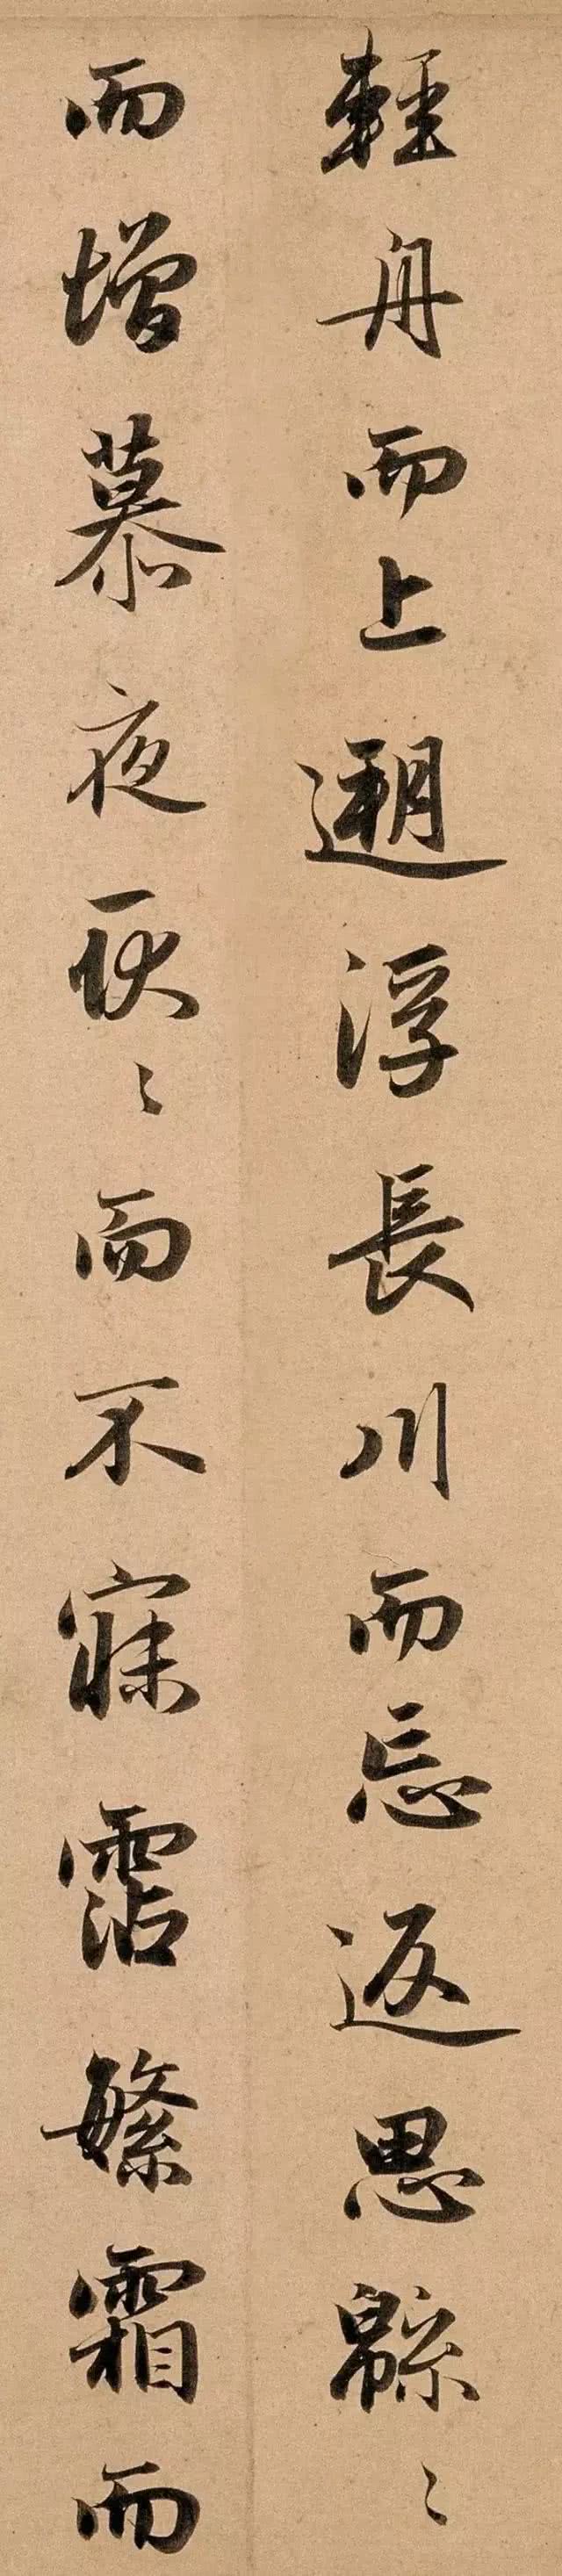 輕舟而上遡浮長川而忘返思緜〻
而增慕夜耿〻而不寐霑繁霜而